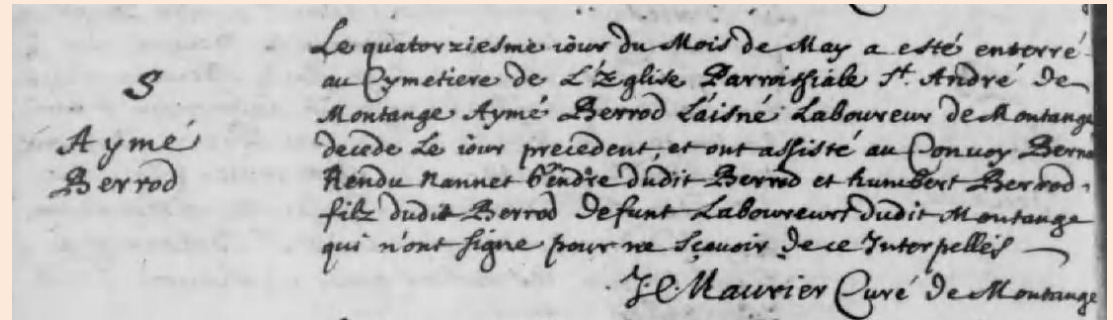 Le quatorziesme iour du Mois de May a esté enterré
au Cymetiere de L'Eglise Parroissiale St. André de
Montange Aymé Berrod L'aisné Laboureur de Montange
decede Le iour precedent, et ont assisté au Convoy
Rendu gendre dudit Berrod et humbert Berrod
filz dudit Berrod defunt Laboureurs dudit Montange
qui n'ont signe pour ne sçavoir de ce Interpellés
Maurier Curé de Montange
S
Aymé
Berrod